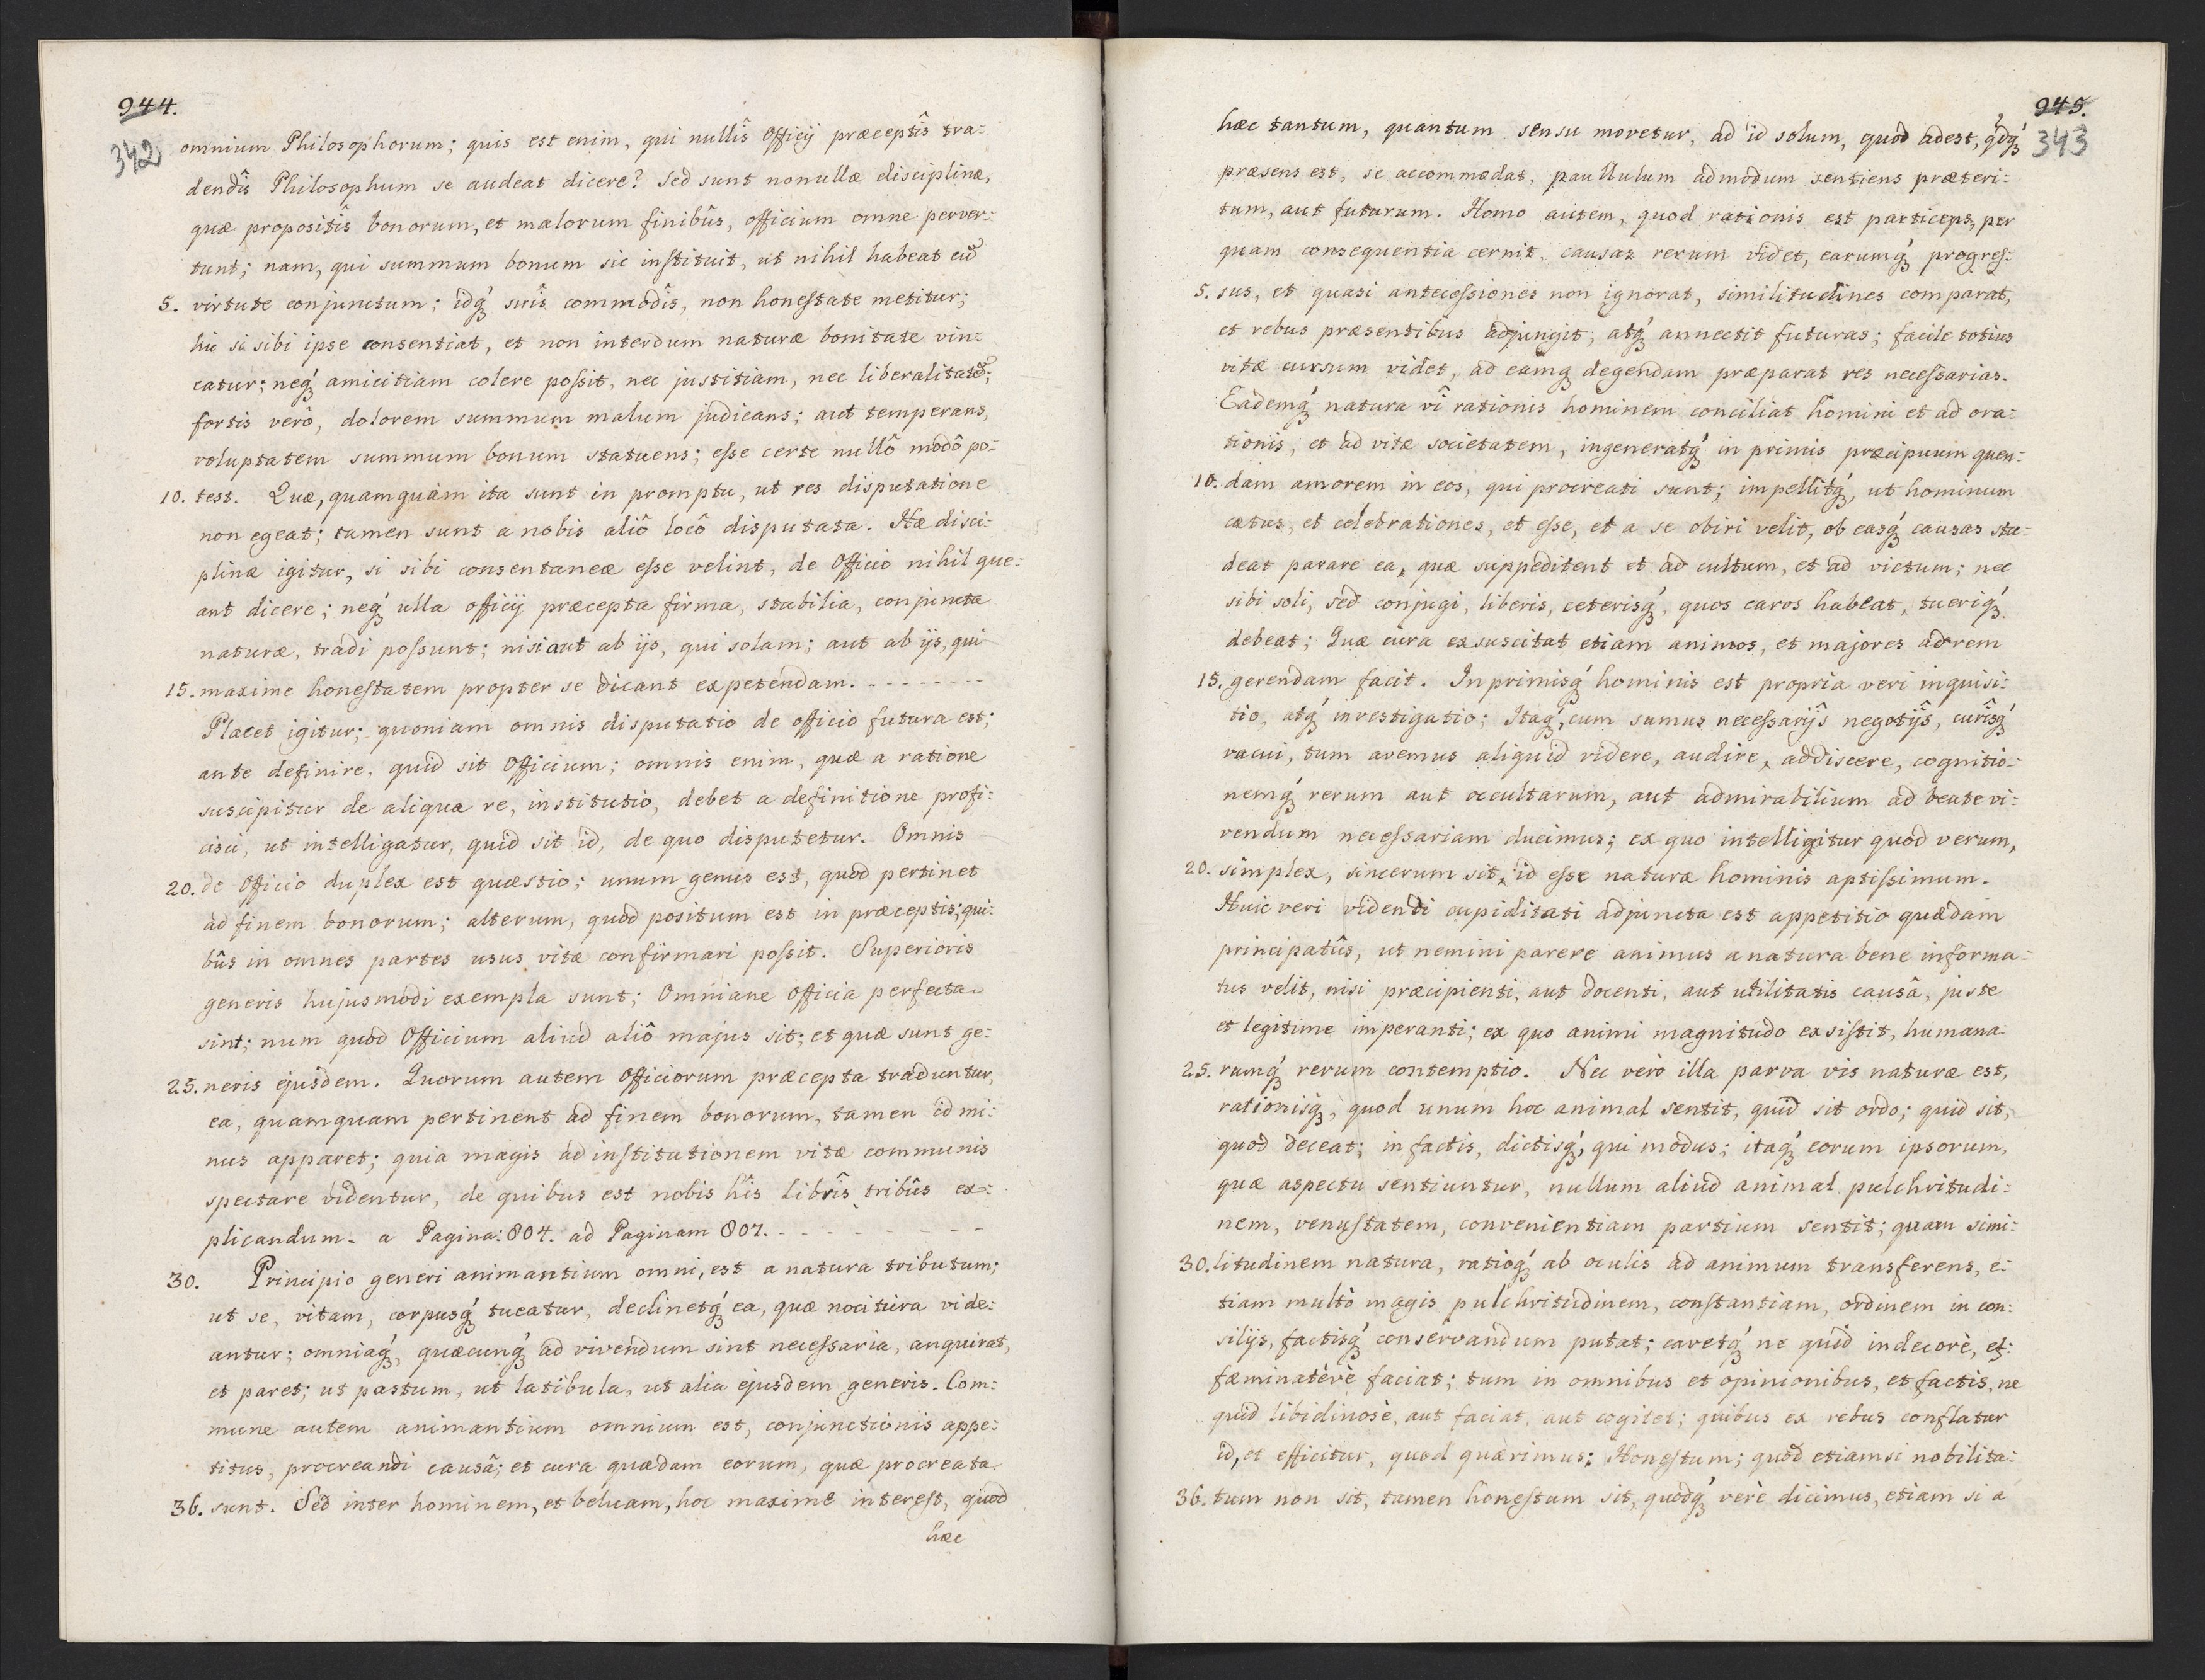 944.
342
omnium Philosophorum; quis est enim, qui nullîs Officÿ præceptîs tra=
dendîs Philosophum se audeat dicere? Sed sunt nonullæ disciplinæ,
quæ propositîs bonorum, et malorum finibûs, officium omne perver=
tunt; nam, qui summum bonum sic inſtituit, ut nihil habeat cũ
5. virtute conjunctum; idq́ʒ suîs commodîs, non honeſtate metitur;
hic si sibi ipse consentiat, et non interdum naturæ bonitate vin=
catur; neq́ʒ amicitiam colere poſsit, nec justitiam, nec liberalitatẽ;
fortis verò, dolorem summum malum judicans; aut temperans,
voluptatem summum bonum statuens; eſse certe nullô modô po=
10. test. Quæ, quamquàm ita sunt in promptu, ut res disputatione
non egeat; tamen sunt a nobis aliô locô disputata. Hæ disci=
plinæ igitur, si sibi consentaneæ eſse velint, de Officio nihil que=
ant dicere; neq́ʒ ulla officÿ præcepta firma, stabilia, conjuncta
naturæ, tradi poſsunt; nisi aut ab ijs, qui solam; aut ab ijs, qui
15. maxime honeſtatem propter se dicant expetendam. - - - - - - - -
Placet igitur; quoniam omnis disputatio de officio futura est;
ante definire, quid sit Officium; omnis enim, quæ a ratione
suscipitur de aliqua re, institutio, debet a definitione profi=
cisci, ut intelligatur, quid sit id, de quo disputetur. Omnis
20. de Officio duplex est quæstio; unum genus est, quod pertinet
ad finem bonorum; alterum, quod positum est in præceptis; qui=
bûs in omnes partes usus vitæ confirmari poſsit. Superioris
generis hujusmodi exempla sunt; Omniane officia perfecta
sint; num quod Officium aliud aliô majus sit; et quæ sunt ge=
25. neris ejusdem. Quorum autem Officiorum præcepta traduntur,
ea, quamquam pertinent ad finem bonorum, tamen id mi=
nus apparet; quia magis ad inſtitutionem vitæ communis
spectare videntur, de quibus est nobis hîs librîs tribûs ex=
plicandum. a Pagina: 804. ad Paginam 807. - - - - - - -
30. Principio generi animantium omni, est a natura tributum;
ut se, vitam, corpusq́ʒ tueatur, declinetq́ʒ ea, quæ nocitura vide=
antur; omniaq́ʒ, quæcunq́ʒ ad vivendum sint neceſsaria, anquirat,
et paret; ut pastum, ut latibula, ut alia ejusdem generis. Com=
mune autem animantium omnium est, conjunctionis appe=
titus, procreandi causâ; et cura quædam eorum, quæ procreata
36. sunt. Sed inter hominem, et beluam, hoc maxime intereſt, quod
hæc
945.
343
hæc tantum, quantum sensu movetur, ad id solum, quod adest, qđq́ʒ
præsens est, se accommodat, paullulum admodum sentiens præteri=
tum, aut futurum. Homo autem, quod rationis est particeps, per
quam consequentia cernit, causas rerum videt, earumq́ʒ progreſ=
5. sus, et quasi anteceſsiones non ignorat, similitudines comparat,
et rebus præsentibus adjungit, atq́ʒ annectit futuras; facile totius
vitæ cursum videt, ad eamqʒ degendam præparat res neceſsarias.
Eademq́ʒ natura vî rationis hominem conciliat homini et ad ora=
tionis, et ad vitæ societatem, ingeneratq́ʒ in primis præcipuum quen=
10. dam amorem in eos, qui procreati sunt; impellitq́ʒ, ut hominum
cætus, et celebrationes, et eſse, et a se obiri velit, ob easq́ʒ causas stu=
deat parare ea, quæ suppeditent et ad cultum, et ad victum; nec
sibi soli, sed conjugi, liberis, ceterisq́ʒ, quos caros habeat, tueriq́ʒ
debeat; Quæ cura exsuscitat etiam animos, et majores ad rem
15. gerendam facit. Inprimisq́ʒ hominis est propria veri inquisi=
tio, atq́ʒ investigatio; Itaq́ʒ, cum sumus neceſsarÿs negotÿs, curîsq́ʒ
vacui, tum avemus aliquid videre, audire, addiscere, cognitio=
nemq́ʒ rerum aut occultarum, aut admirabilium ad beate vi=
vendum neceſsariam ducimus; ex quo intelligitur quod verum,
20. simplex, sincerum sit, id eſse naturæ hominis aptiſsimum.
Huic veri videndi cupiditati adjuncta est appetitio quædam
principatûs, ut nemini parere animus a natura bene informa=
tus velit, nisi præcipienti, aut docenti, aut utilitatis causâ, juste
et legitime imperanti; ex quo animi magnitudo exsiſtit, humana=
25. rumq́ʒ rerum contemptio. Nec verò illa parva vis naturæ est,
rationisq́ʒ, quod unum hoc animal sentit, quid sit ordo; quid sit,
quod deceat; in factis, dictisq́ʒ, qui modus; itaq́ʒ eorum ipsorum,
quæ aspectu sentiuntur, nullum aliud animal pulchritudi=
nem, venuſtatem, convenientiam partium sentit; quam simi=
30. litudinem natura, ratioq́ʒ ab oculis ad animum transferens, e=
tiam multò magis pulchritudinem, conſtantiam, ordinem in con=
silijs, factisq́ʒ conservandum putat; cavetq́ʒ ne quid indecorè, ef=
fæminatèvè faciat; tum in omnibus et opinionibus, et factis, ne
quid libidinosè, aut faciat, aut cogitet; quibus ex rebus conflatur
id, et efficitur, quod quærimus; Honeſtum; quod etiamsi nobilita=
36. tum non sit, tamen honeſtum sit, quodq́ʒ verè dicimus, etiam si a